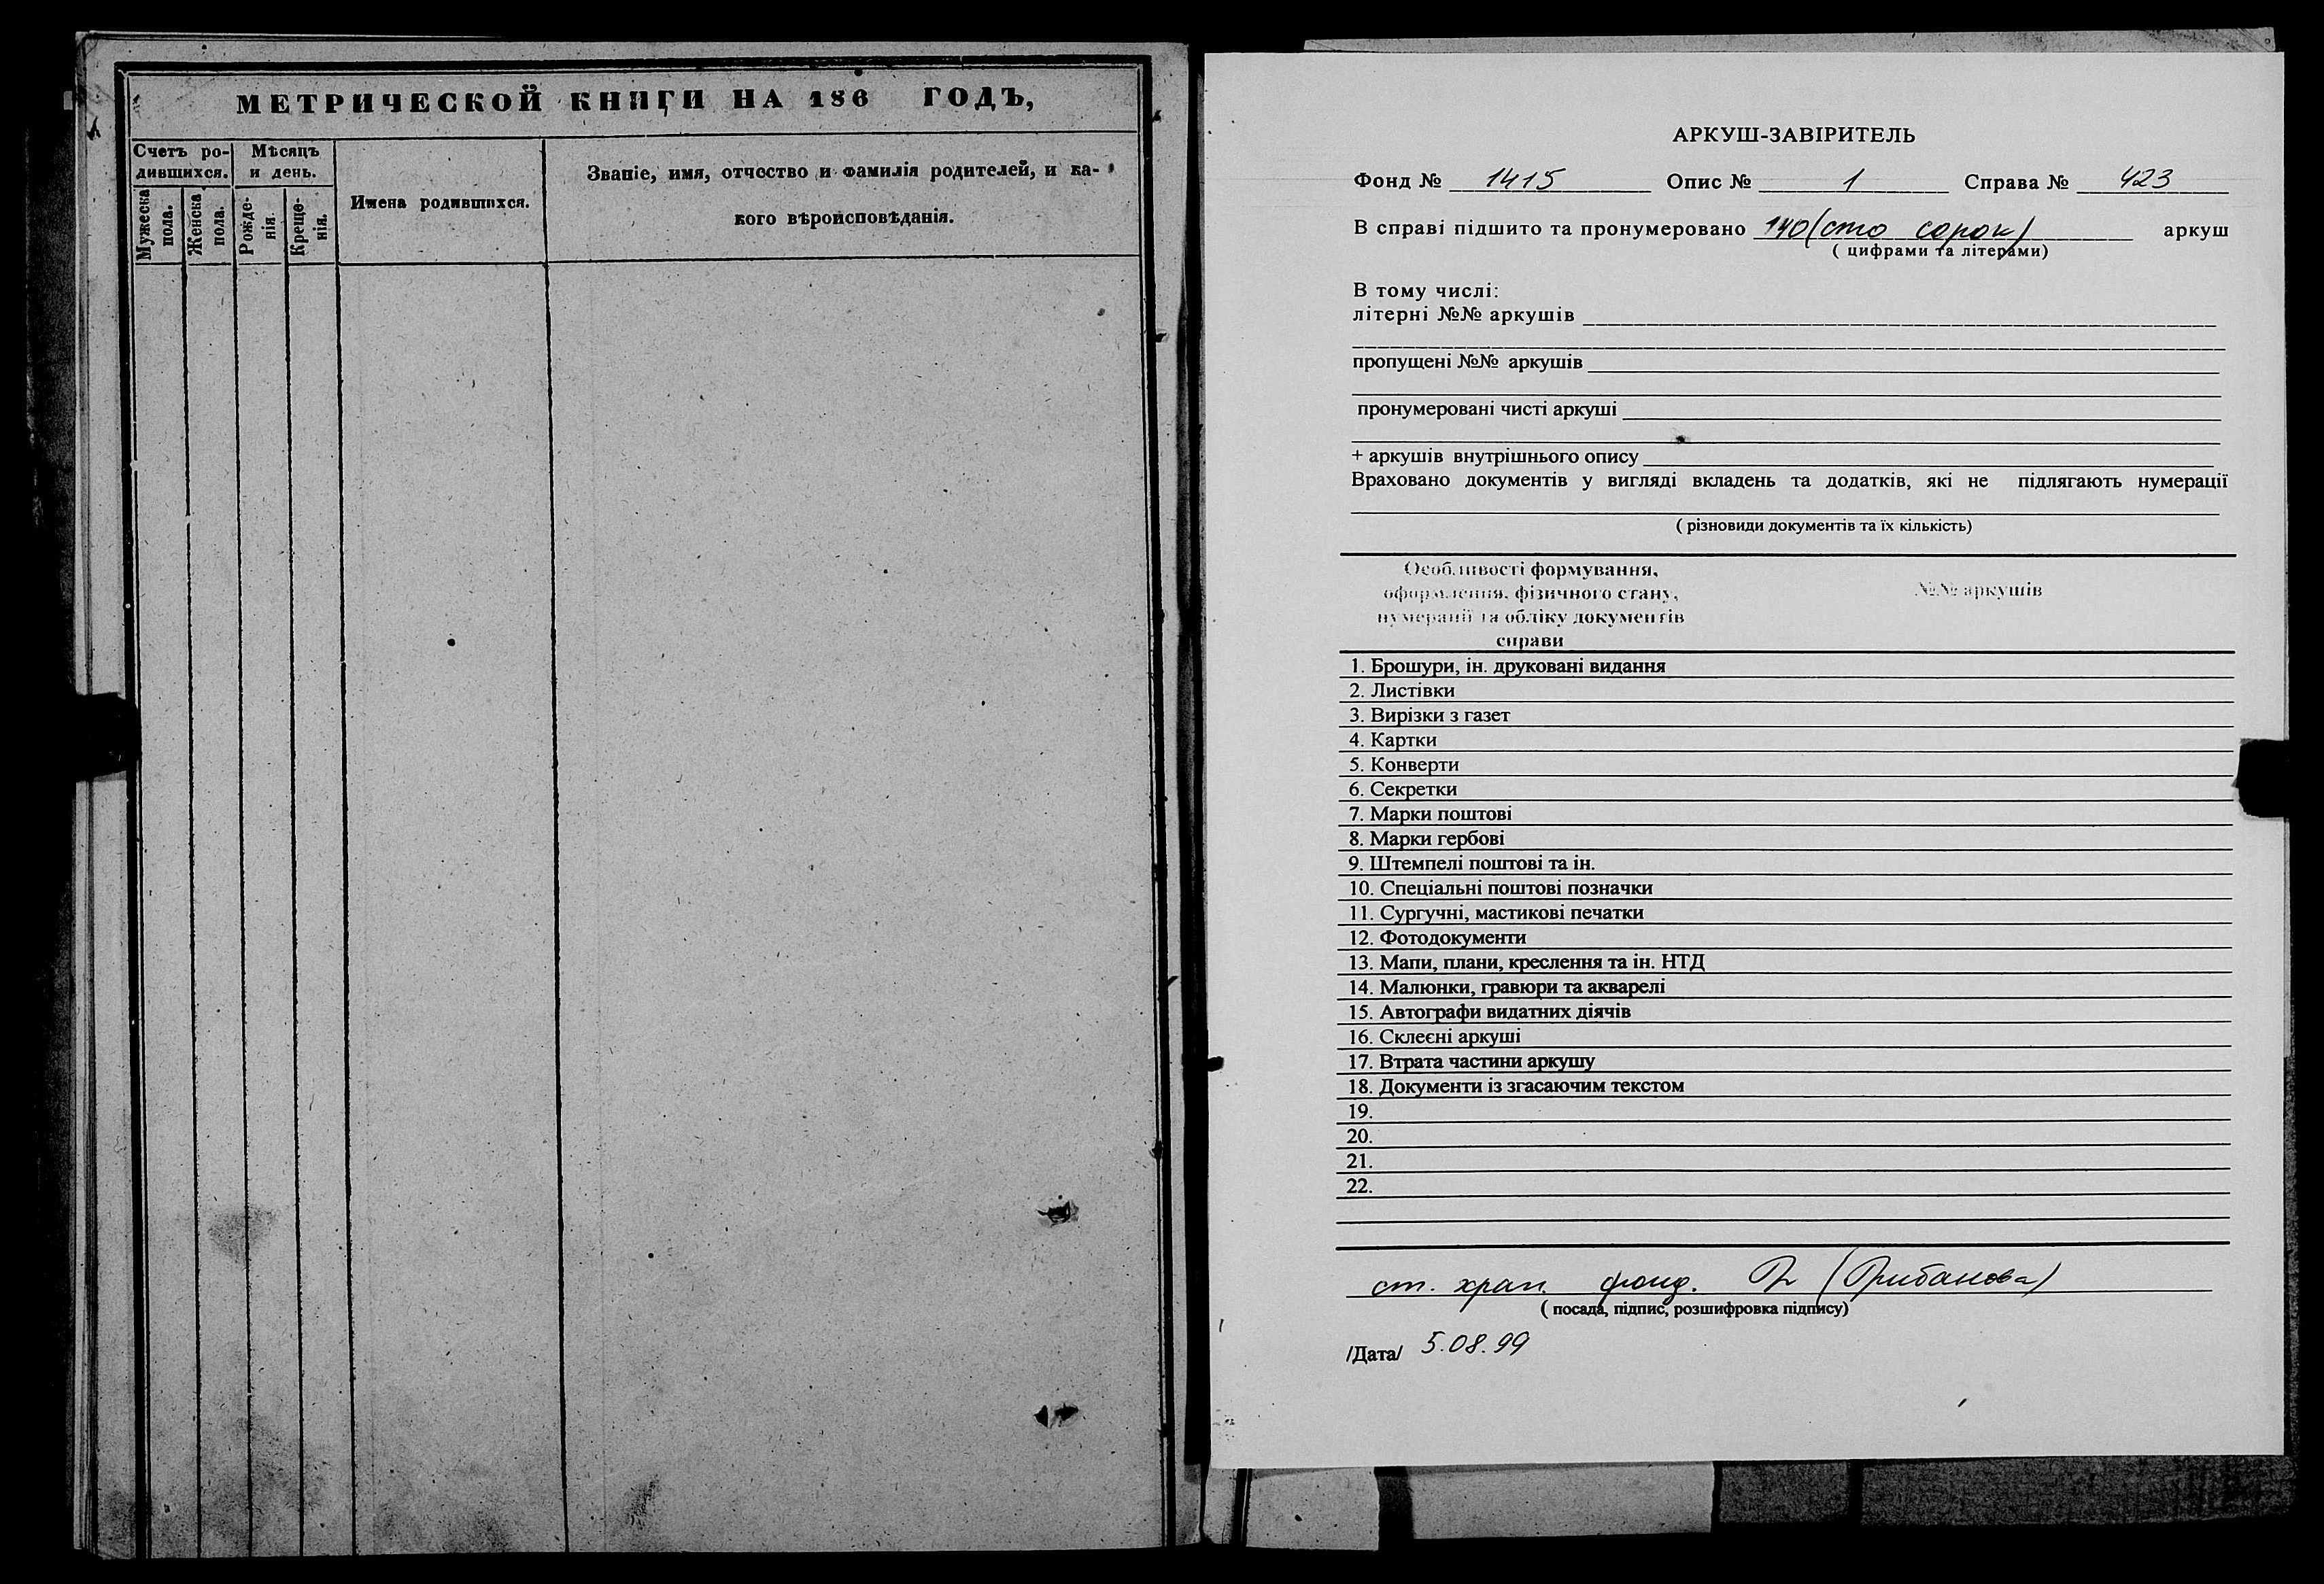 МЕТРИЧЕСКОЙ КНИГИ НА 186 ГОДЪ,
Счетъ ро-
дившихся.
Мѣсяцъ
и день.
Мужеска
пола.
Женска
пола.
Рожде-
нія.
Креще-
нія.
Имена родившихся.
Званіе, имя, отчество и фамилія родителей, и ка-
кого вѣроисповѣданія.
АРКУШ-ЗАВІРИТЕЛЬ
Фонд № 1415 Опис № 1 Справа № 423
В справі підшито та пронумеровано 140 (сто сорок) аркуш
( цифрами та літерами)
В тому числі:
літерні №№ аркушів
пропущені №№ аркушів
пронумеровані чисті аркуші
+ аркушів внутрішнього опису
Враховано документів у вигляді вкладень та додатків, які не підлягають нумерації
( різновиди документів та їх кількість)
Особливості формування,
оформлення, фізичного стану,
нумерації та обліку документів
справи
№№ аркушів
1. Брошури, ін. друковані видання
2. Листівки
3. Вирізки з газет
4. Картки
5. Конверти
6. Секретки
7. Марки поштові
8. Марки гербові
9. Штемпелі поштові та ін.
10. Спеціальні поштові позначки
11. Сургучні, мастикові печатки
12. Фотодокументи
13. Мапи, плани, креслення та ін. НТД
14. Малюнки, гравюри та акварелі
15. Автографи видатних діячів
16. Склеєні аркуші
17. Втрата частини аркушу
18. Документи із згасаючим текстом
19.
20.
21.
22.
ст. хран. фонд.
( посада, підпис, розшифровка підпису)
/Дата/ 5.08.99